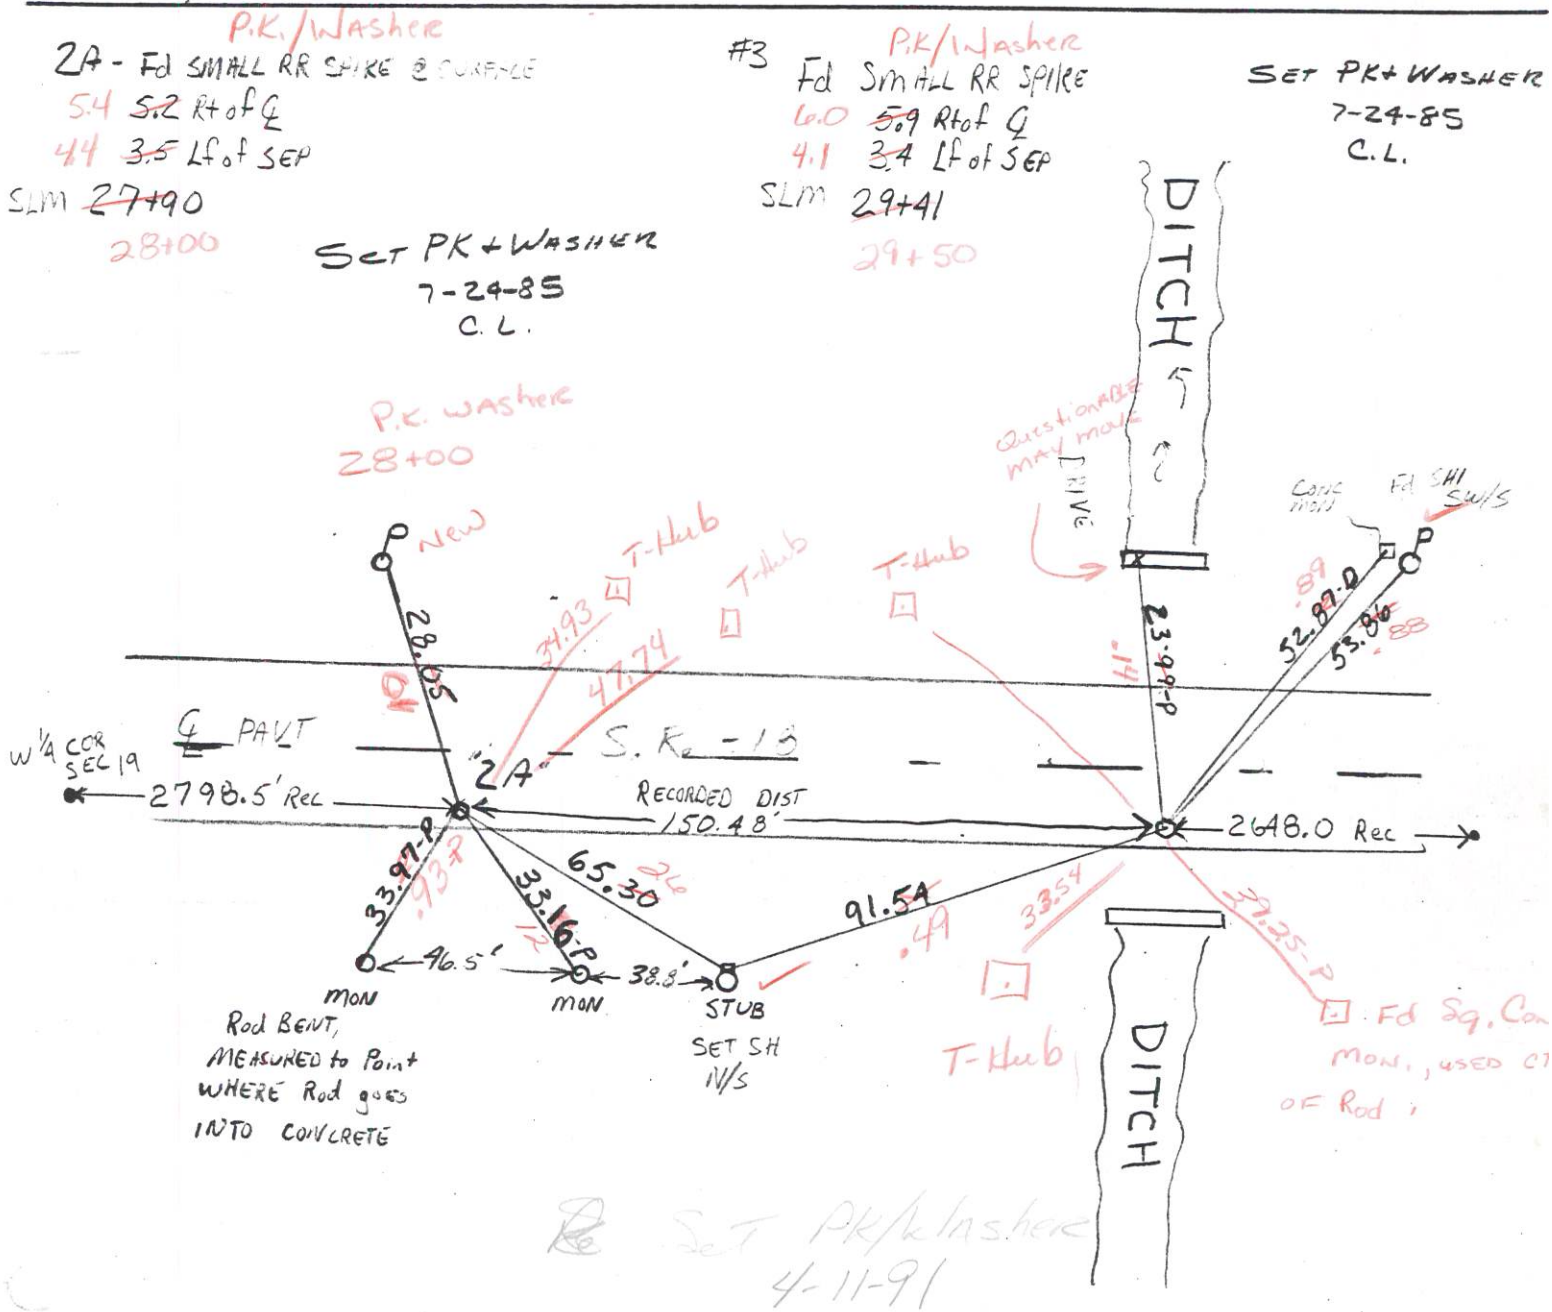 P.K./Washer
2A - Fd SMALL RR SPIKE @ SURFACE
5.4 5.2 Rt of ℄
4.4 3.5 Lf of SEP
SLM 27+90
28+00
SET PK + WASHER
7-24-85
C.L.
P.K/Washer
#3 Fd SMALL RR SPIKE
6.0 5.9 Rt of ℄
4.1 3.4 Lf of SEP
SLM 29+41
29+50
SET PK + WASHER
7-24-85
C.L.
DITCH
P.K. WASHER
28+00
Questionable
MAY MOVE
DRIVE
CONC
MON
Fd SHI
SW/S
P
New
T-Hub
T-Hub
T-Hub
P
28.05
34.93
47.74
23.99-P
.14
52.87-P
.89
53.86
.88
W 1/4 COR
SEC 19
℄ PAVT
"2A"
S.R. - 18
2798.5' Rec
RECORDED DIST
150.48'
2648.0 Rec
33.97-P
.93-P
33.16-P
12
65.30
26
91.54
.49
33.54
39.25-P
46.5'
38.8'
MON
MON
STUB
SET SH
N/S
Rod BENT,
MEASURED to Point
WHERE Rod goes
INTO CONCRETE
T-Hub
DITCH
Fd Sq. Con
MON., USED CT
OF Rod
Set PK/Washer
4-11-91